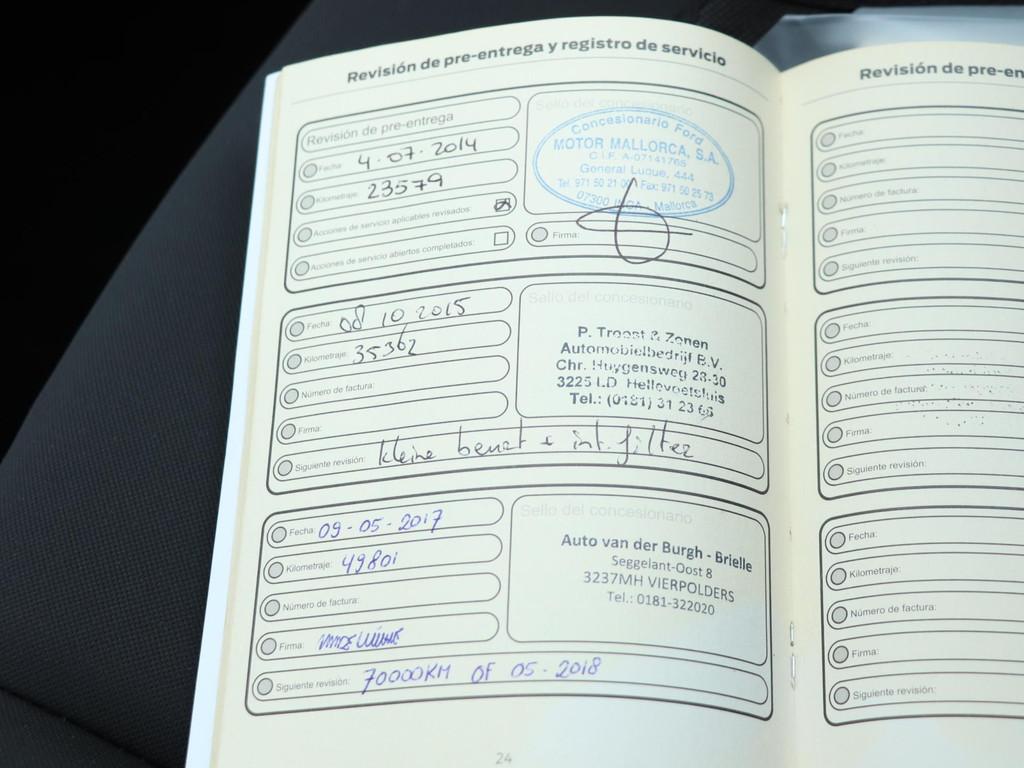 Revisión de pre-entrega y registro de servicio
Revisión de pre-entrega
Fecha: 4·07·2014
Kilometraje: 23579
Acciones de servicio aplicables revisados:
Acciones de servicio abiertos completados:
Sello del concesionario
Concesionario Ford
MOTOR MALLORCA, S.A.
C.I.F. A-07141765
General Luque, 444
Tel. 971 50 21 00 Fax: 971 50 25 73
07300 INCA - Mallorca
Firma:
Fecha: 08 10 2015
Kilometraje: 35362
Número de factura:
Firma:
Siguiente revisión: kleine beurt + int. filter
Sello del concesionario
P. Troost & Zonen
Automobielbedrijf B.V.
Chr. Huygensweg 28-30
3225 LD Hellevoetsluis
Tel.: (0181) 31 23 66
Fecha: 09-05-2017
Kilometraje: 49801
Número de factura:
Firma:
Siguiente revisión: 70000KM OF 05-2018
Sello del concesionario
Auto van der Burgh - Brielle
Seggelant-Oost 8
3237MH VIERPOLDERS
Tel.: 0181-322020
24
Revisión de pre-en
Fecha:
Kilometraje:
Número de factura:
Firma:
Siguiente revisión:
Fecha:
Kilometraje:
Número de factura:
Firma:
Siguiente revisión:
Fecha:
Kilometraje:
Número de factura:
Firma:
Siguiente revisión: